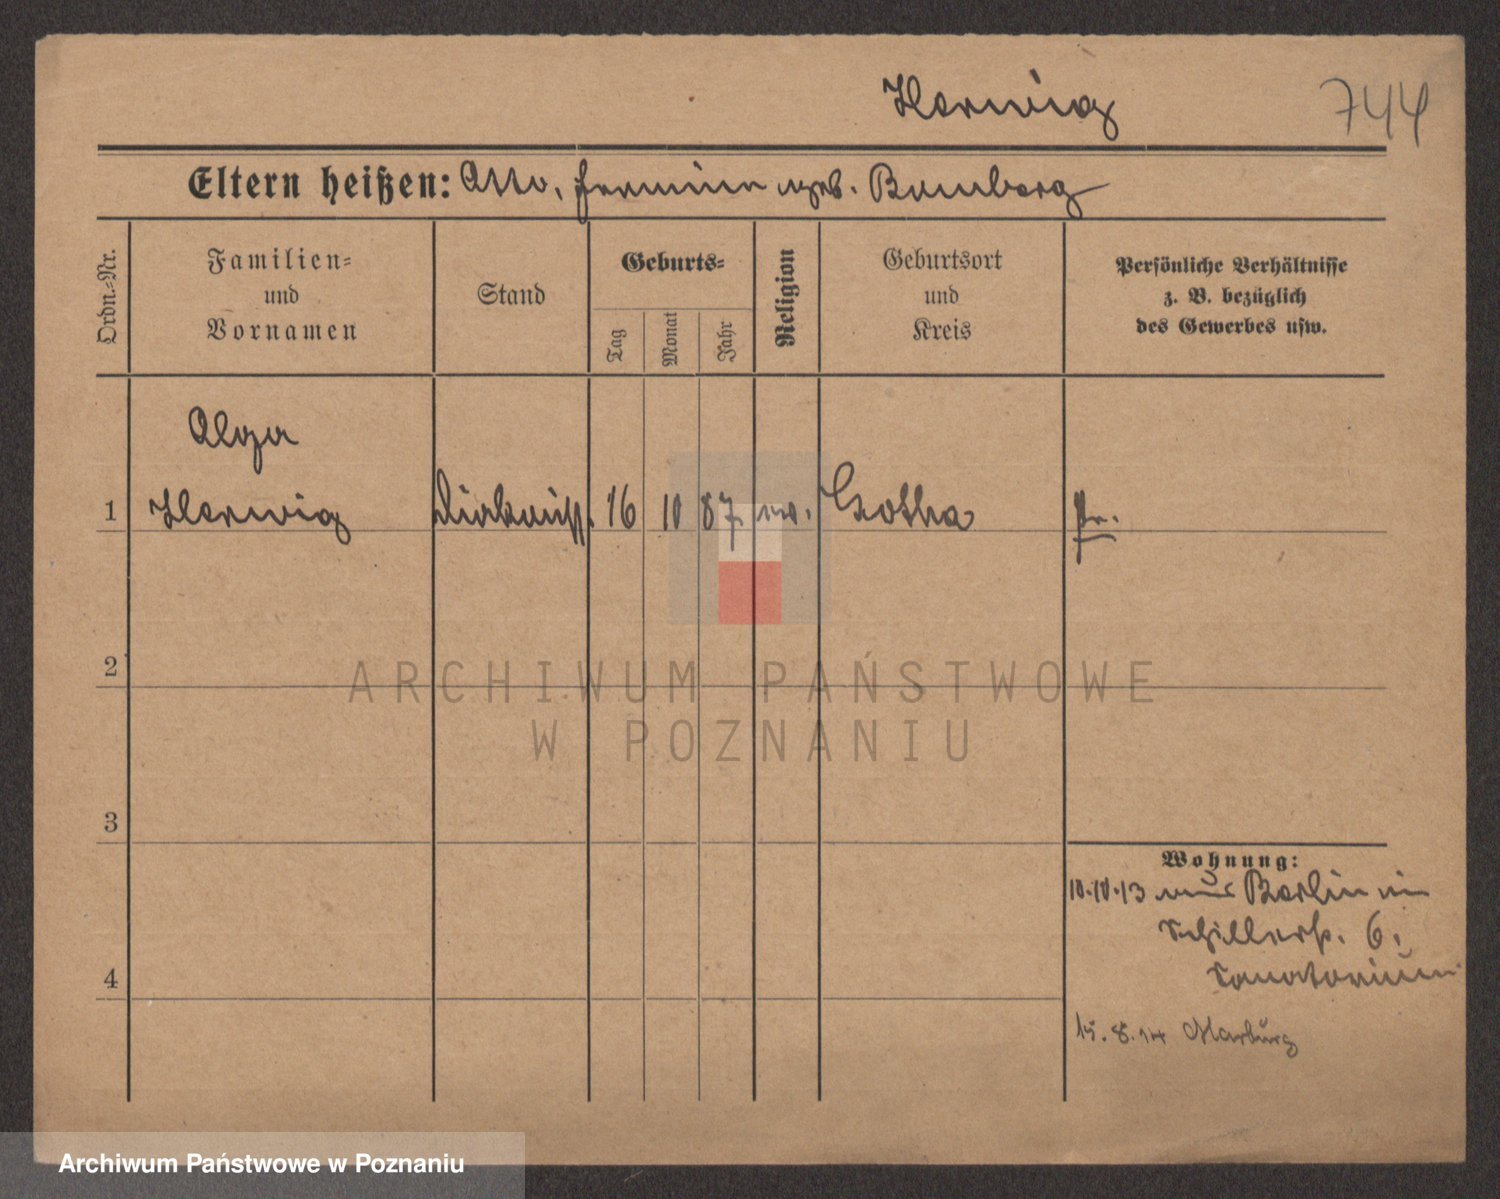 Herwig 744
Eltern heißen: Otto, geb. Bamberg
Ordn.-Nr.
Familien-
und
Vornamen
Stand
Geburts-
Tag
Monat
Jahr
Religion
Geburtsort
und
Kreis
Persönliche Verhältnisse
z. B. bezüglich
des Gewerbes usw.
Olga
1 Herwig 16 10 87. ev. Gotha Pr.
2
ARCHIWUM PAŃSTWOWE
W POZNANIU
3
Wohnung:
10.10.13 aus Berlin in
Schillerstr. 6.
Sanatorium
4
15.8.14 Marburg
Archiwum Państwowe w Poznaniu